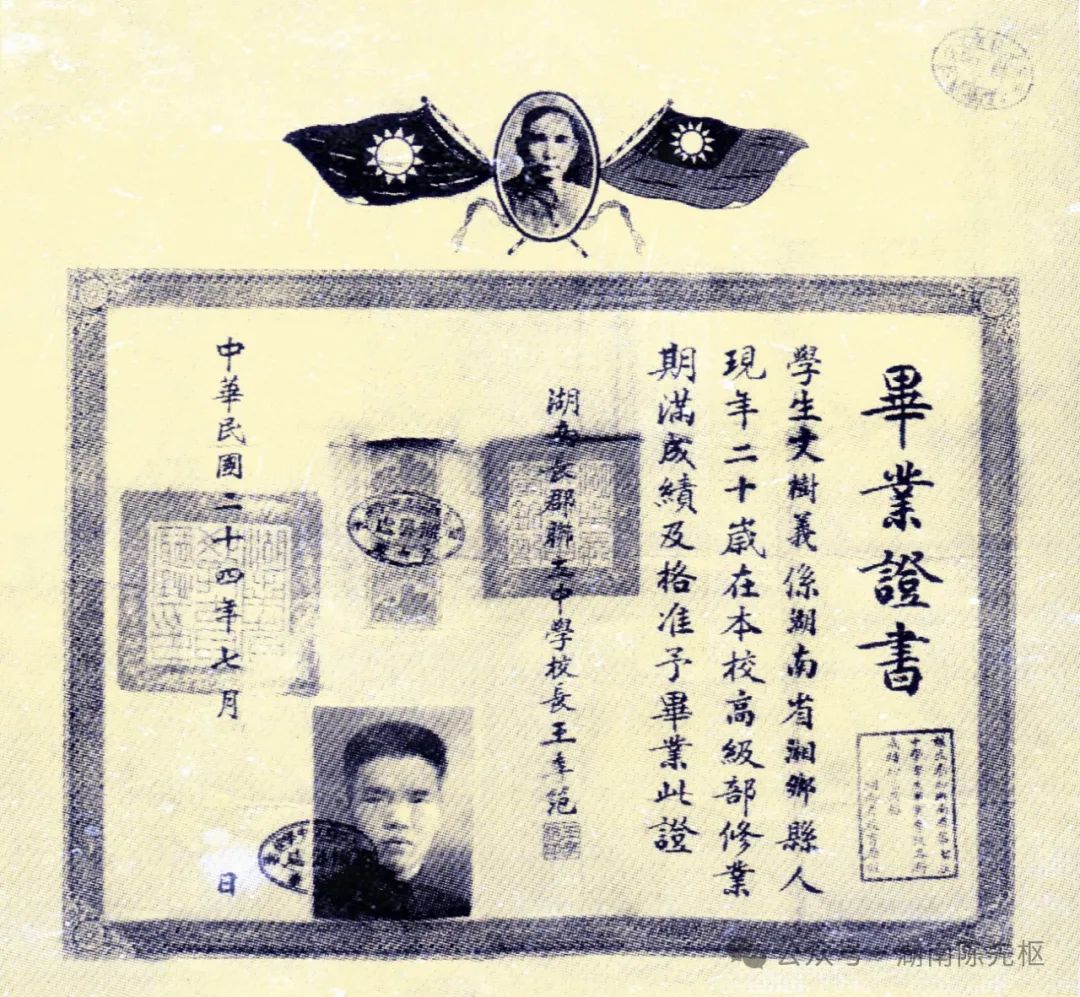 畢業證書
學生文樹義係湖南省湘鄉縣人
現年二十歲在本校高級部修業
期滿成績及格准予畢業此證
湖南長郡聯立中學校長王季范
中華民國二十四年七月
日
公众号·湖南陈先枢